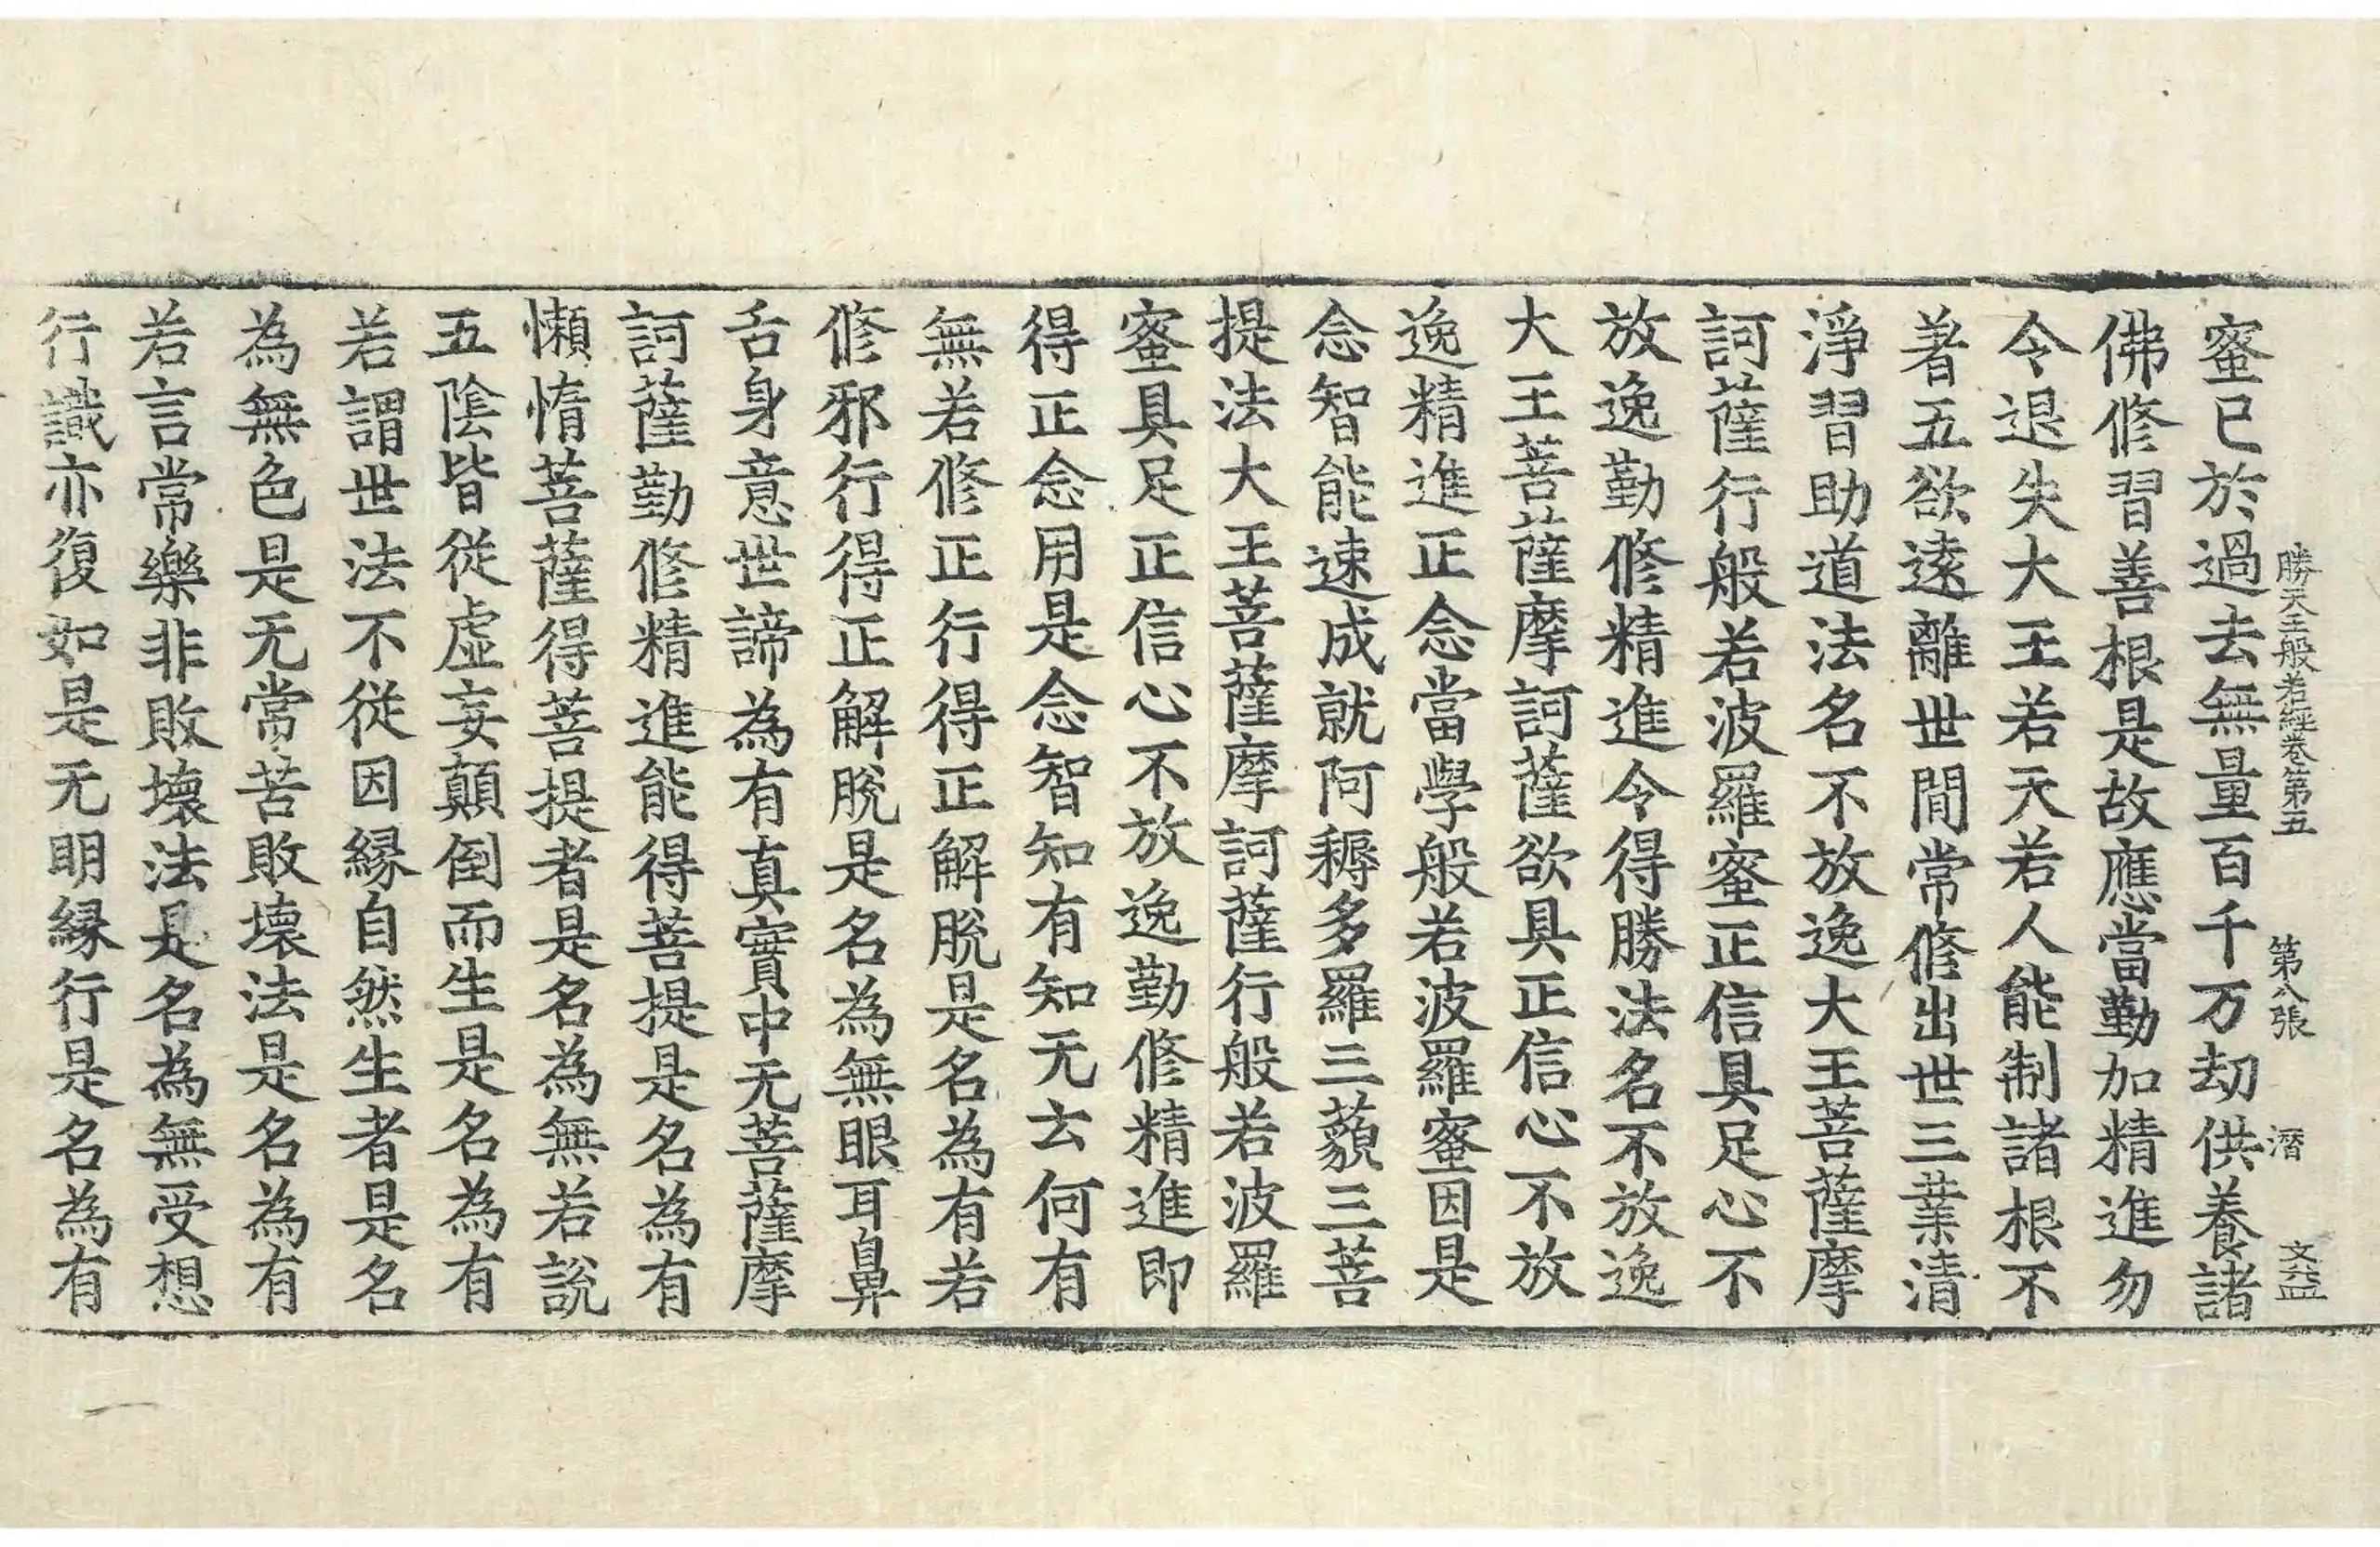 勝天王般若經卷第五　第八張　潛　文益
蜜已於過去無量百千万劫供養諸
佛修習善根是故應當勤加精進勿
令退失大王若天若人能制諸根不
著五欲遠離世間常修出世三業清
淨習助道法名不放逸大王菩薩摩
訶薩行般若波羅蜜正信具足心不
放逸勤修精進令得勝法名不放逸
大王菩薩摩訶薩欲具正信心不放
逸精進正念當學般若波羅蜜因是
念智能速成就阿耨多羅三藐三菩
提法大王菩薩摩訶薩行般若波羅
蜜具足正信心不放逸勤修精進即
得正念用是念智知有知无云何有
無若修正行得正解脫是名為有若
修邪行得正解脫是名為無眼耳鼻
舌身意世諦為有真實中无菩薩摩
訶薩勤修精進能得菩提是名為有
懶惰菩薩得菩提者是名為無若說
五陰皆從虛妄顛倒而生是名為有
若謂世法不從因緣自然生者是名
為無色是无常苦敗壞法是名為有
若言常樂非敗壞法是名為無受想
行識亦復如是无明緣行是名為有